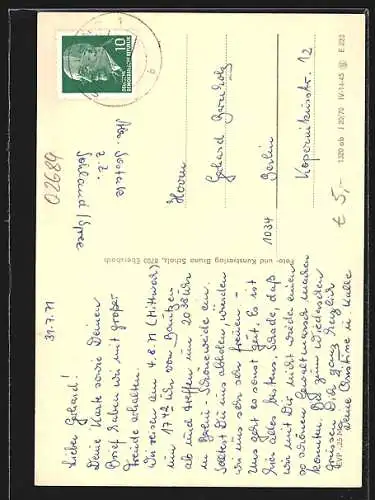 31.7.71
Lieber Gehard!
Deine Karte sowie Deinen
Brief haben wir mit großer
Freude erhalten.
Wir reisen am 4.8.71 (Mittwoch)
um 17 42 Uhr von Bautzen
ab und treffen um 20 38 Uhr
in Berlin-Schöneweide ein.
Solltest Du uns abholen, würden
wir uns sehr freuen.
Uns geht es sonst gut. Es ist
hier alles bestens. Schade, daß
wir mit Dir nicht wieder einen
so schönen Gewaltmarsch machen
konnten. Bis zum Wiedersehen
grüßen Dich ganz herzlich
Deine Christine u. Kalle
EVP
Foto- und Kunstverlag Bruno Scholz, 8705 Ebersbach
02689
z. Z.
Sohland/Spree
10
DEUTSCHE
DEMOKRATISCHE REPUBLIK
Herrn
Gehard
1034 Berlin
Kopernikusstr. 12
1320 ab I 20/70 IV-14-45 E 223
€ 5,-